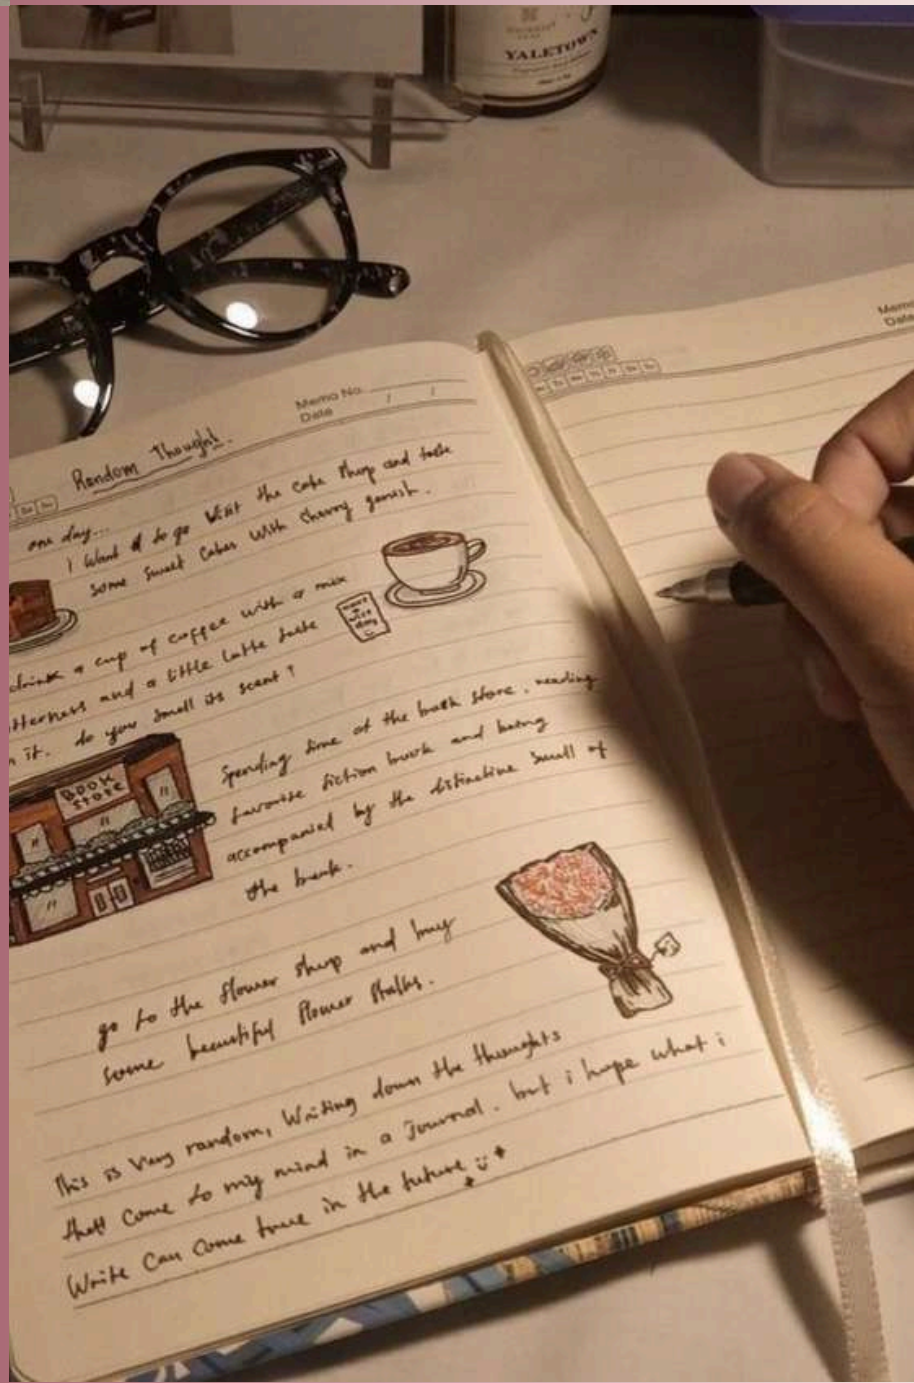 YALETOWN
Memo No.
Date / /
Memo
Date
Random Thought.
one day...
I Want to go Visit the cake shop and taste
some sweet Cakes With cherry garnish.
drink a cup of coffee with a mix
and a little Latte taste
it. do you smell its scent?
have
a
nice
day
BOOK
STORE
Spending time at the book store, reading
favorite fiction book and being
accompanied by the distinctive smell of
the book.
go to the flower shop and buy
some beautiful flower stalks.
This is Very random, Writing down the thoughts
that Come to my mind in a Journal. but i hope what i
Write Can Come true in the future